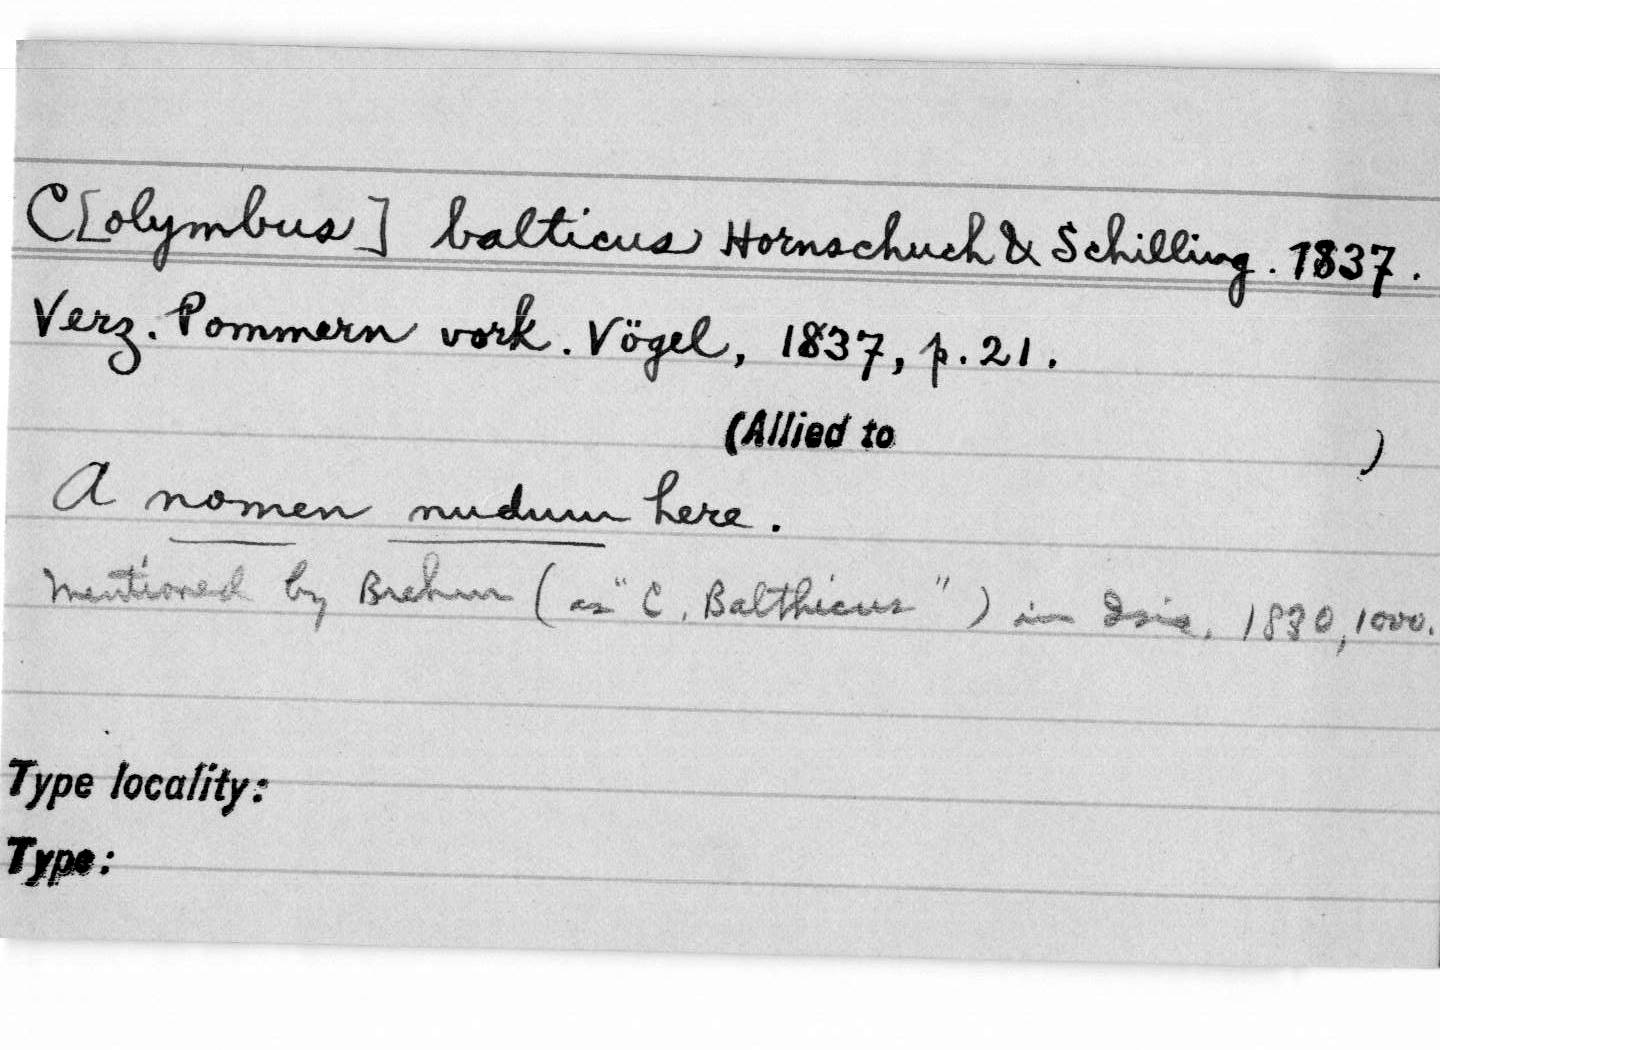 C[olymbus] balticus Hornschuch & Schilling. 1837.
Verz. Pommern vork. Vögel, 1837, p. 21.
(Allied to )
A nomen nudum here.
Mentioned by Brehm (as "C. Balthicus") in Isis, 1830, 1000.
Type locality:
Type: